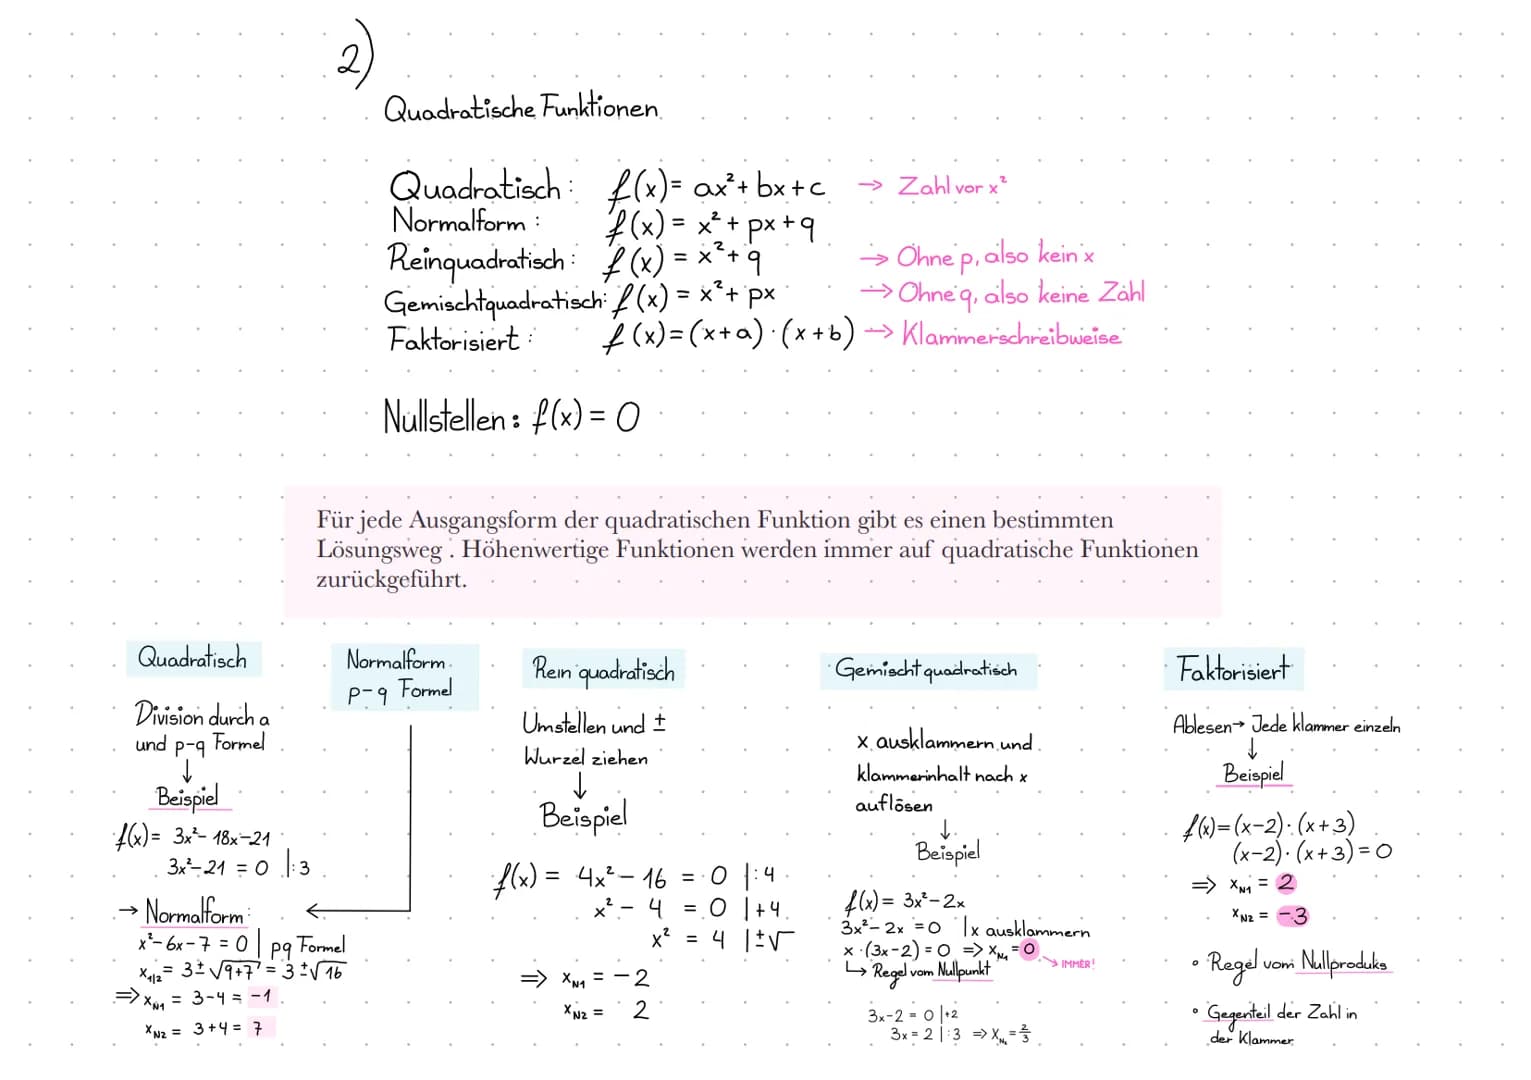 2)
Quadratische Funktionen
Quadratisch: f(x) = ax²+ bx+c → Zahl vor x²
Normalform: f(x) = x² + px + q
Reinquadratisch: f(x) = x²+ q → Ohne p, also kein x
Gemischtquadratisch: f(x) = x²+ px → Ohne q, also keine Zahl
Faktorisiert: f(x)=(x+a)·(x+b) → Klammerschreibweise
Nullstellen: f(x) = 0
Für jede Ausgangsform der quadratischen Funktion gibt es einen bestimmten
Lösungsweg . Höhenwertige Funktionen werden immer auf quadratische Funktionen
zurückgeführt.
Quadratisch
Division durch a
und p-q Formel
↓
Beispiel
f(x)= 3x²- 18x-21
3x²-21 = 0 |:3
→ Normalform:
x²-6x-7=0 | pq Formel
x₁/₂= 3±√9+7 = 3±√16
⇒ xN1 = 3-4 = -1
xN2 = 3+4= 7
Normalform
p-q Formel
Rein quadratisch
Umstellen und ±
Wurzel ziehen
↓
Beispiel
f(x) = 4x² - 16 = 0 |:4
x² - 4 = 0 |+4
x² = 4 |±√
⇒ xN1 = -2
xN2 = 2
Gemischt quadratisch
x ausklammern und
klammerinhalt nach x
auflösen
↓
Beispiel
f(x)= 3x²-2x
3x²- 2x =0 |x ausklammern
x·(3x-2)=0 ⇒ xN1=0
→ IMMER!
↳ Regel vom Nullpunkt
3x-2 = 0 |+2
3x = 2 |:3 ⇒ xN2=2/3
Faktorisiert
Ablesen→ Jede klammer einzeln
↓
Beispiel
f(x)=(x-2)·(x+3)
(x-2)·(x+3)=0
⇒ xN1 = 2
xN2 = -3
• Regel vom Nullproduks
• Gegenteil der Zahl in
der Klammer